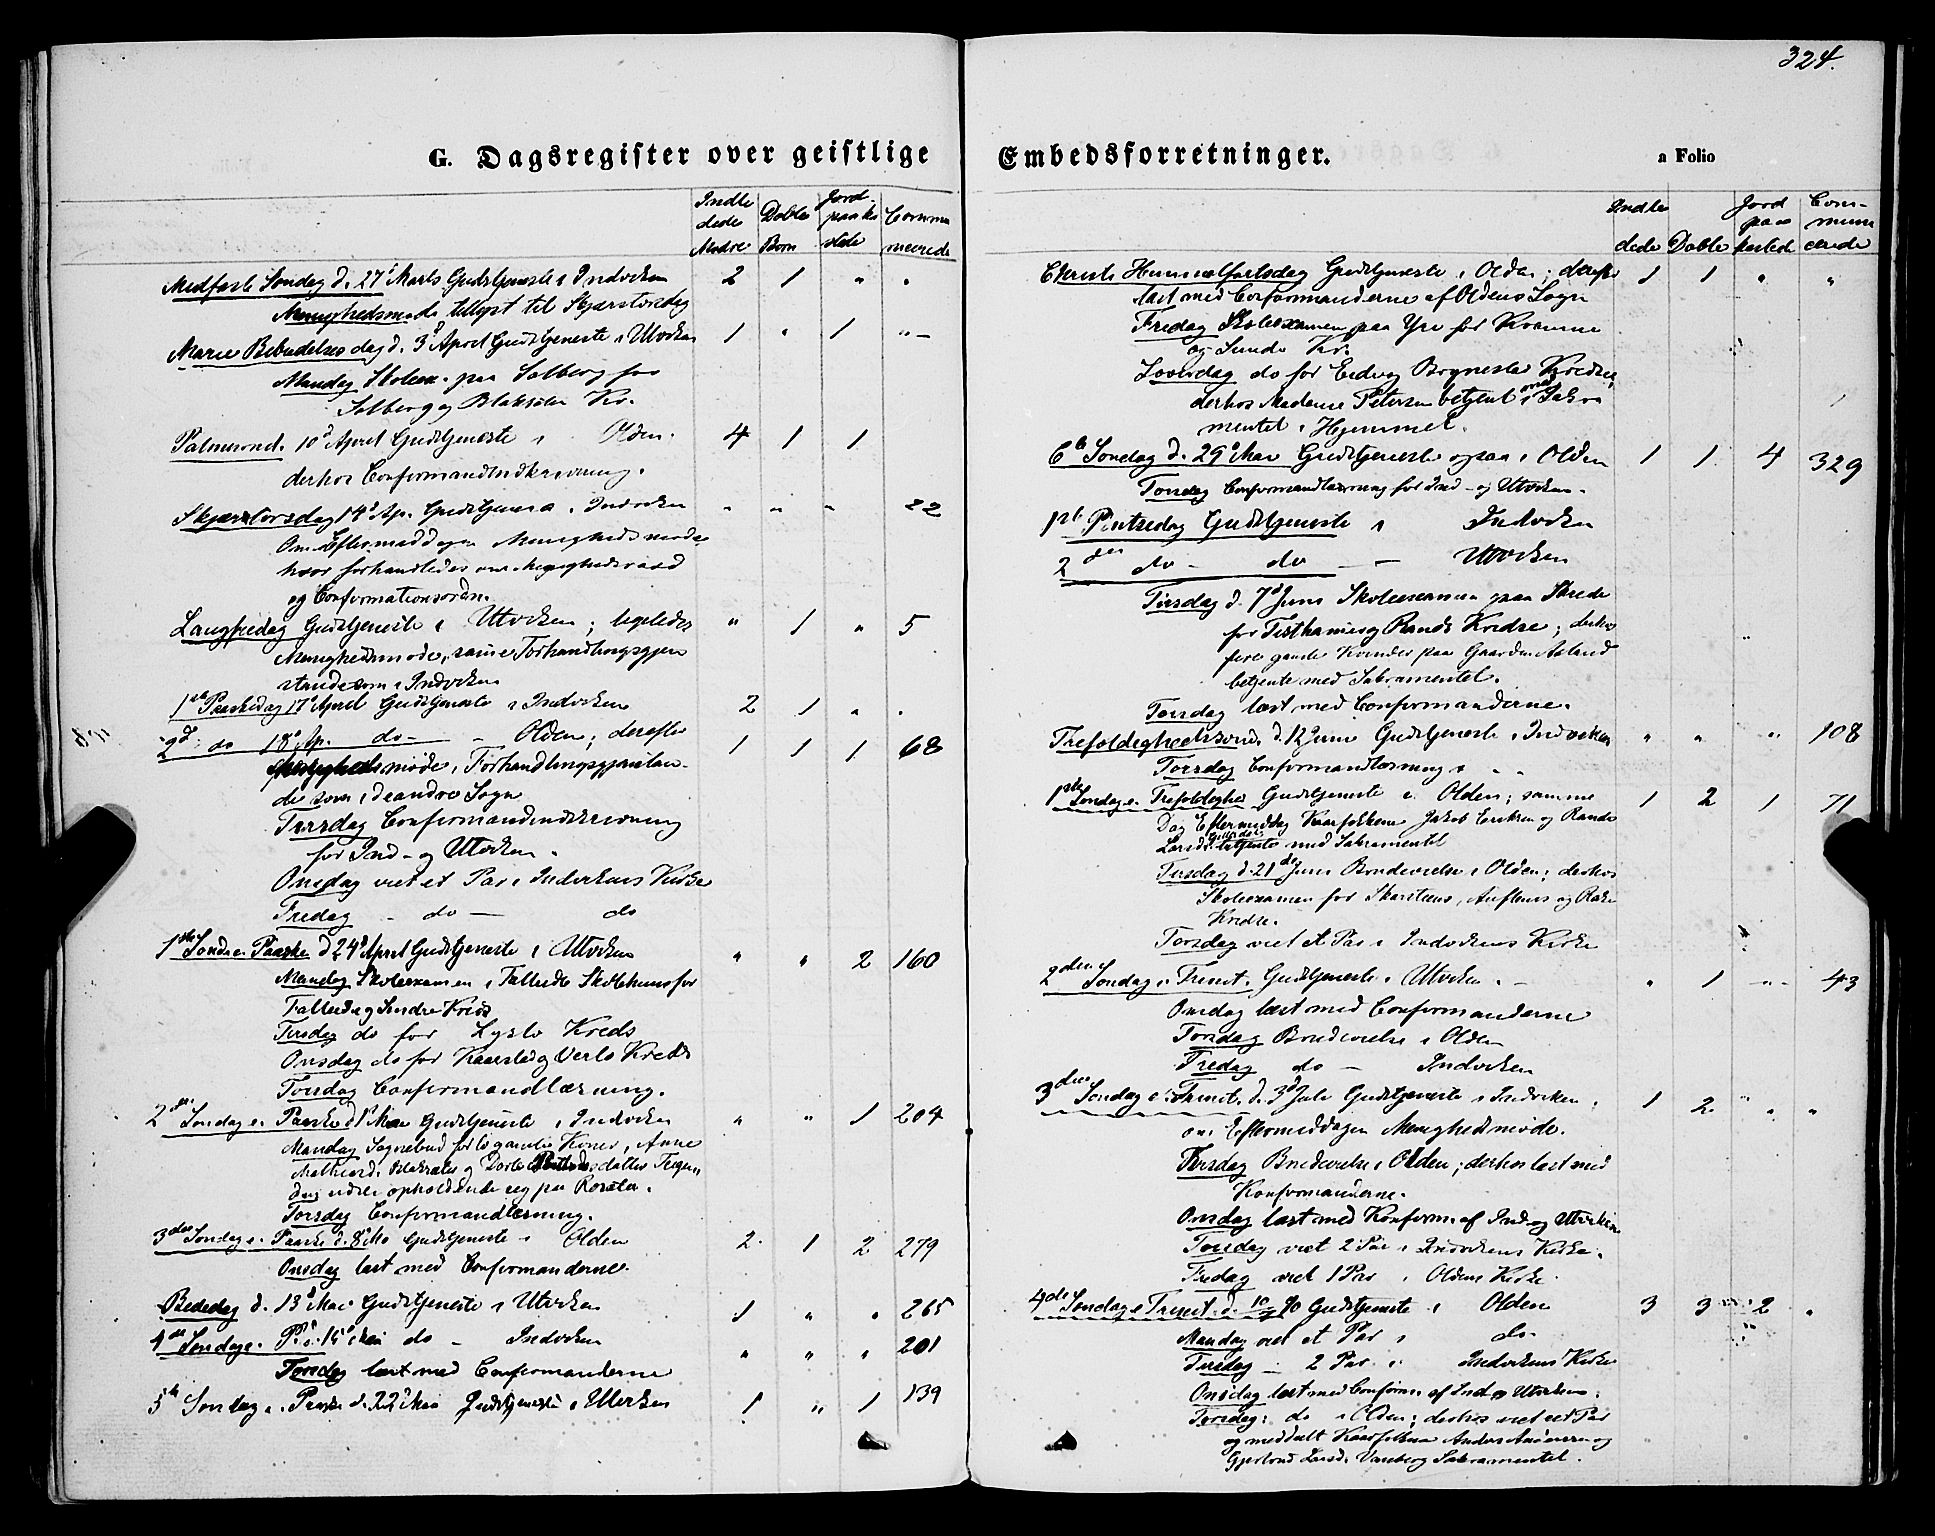 324.
G. Dagsregister over geistlige
Indle dede Mødre
Døbte Børn
Jord paaka stede
Commu nicerede
Midfaste Søndag d. 27' Marts Gudstjeneste i Indviken 2 1 " "
Menighedsmøde tillyst til Skjærstorsdag
Marie Bebudelses dag d. 3' April Gudstjeneste i Utviken 1 " 1 " -
Mandag Skoleex. paa Solberg for
Solberg og Blaksæter Kr.
Palmesønd. 10' April Gudstjeneste i Olden. 4 1 1
derhos Confirmandindskrivning.
Skjærtorsdag 14' Ap. Gudstjeneste i Indviken " " " 22
Om Eftermiddagen Menighedsmøde
hvor forhandledes om Menighedsraad
og Confirmationsordn.
Langfredag Gudstjeneste i Utviken; ligeledes " 1 " 5
Menighedsmøde, samme Forhandlingsgjen
stande som i Indviken
1ste Paaskedag 17' April Gudstjeneste i Indviken 2 1 " "
2d. do 18' Ap. do - - Olden; derefter 1 1 1 68
Menighedsmøde, Forhandlingsgjenstan-
de som i de andre Sogn
Tirsdag Confirmandindskrivning
for Ind- og Utviken.
Onsdag viet et Par i Indvikens Kirke
Fredag - do - do
1ste Sønd. e. Paaske d 24' April Gudstjeneste i Utviken " " 2 160
Mandag Skoleexamen i Skolehuus for
og Søndre Kreds
Tirsdag do for Kreds
Onsdag do for og Kreds
Torsdag Confirmandlæsning.
2den Søndag e. Paaske d 1' Mai Gudstjeneste i Indviken " " 1 204
Mandag Sognebud for to gamle Koner, Anne
Blaksæter og datter
opholdende sig paa
Torsdag Confirmandlæsning.
3die Søndag e. Paaske d. 8' Mai Gudstjeneste i Olden 2 1 2 279
Onsdag læst med Confirmanderne.
Bededag d. 13' Mai Gudstjeneste i Utviken 1 " " 265
4de Søndag e. P. d. 15' Mai do - Indviken " " " 201
Torsdag læst med Confirmanderne
5te Søndag e. Paaske d. 22' Mai Gudstjeneste i Utviken 1 " 1 139
Embedsforretninger.
a Folio
Indle dede
Døbte
Jord paa kastede
Com- muni cerede
Christi Himmelfartsdag Gudstjeneste i Olden; derefter 1 1 " "
læst med Confirmanderne af Oldens Sogn
Fredag Skoleexamen paa Yri for
og Sunde Kr.
Løverdag do for Eid og Kredse,
derhos Madame Petersen betjent med Sakra 1
mentet i Hjemmet.
6te Søndag d. 29' Mai Gudstjeneste ogsaa i Olden 1 1 4 329
Torsdag Confirmandlæsning for Ind- og Utviken.
1ste Pintsedag Gudstjeneste i Indviken
2den do - do - - Utviken
Tirsdag d. 7' Juni Skoleexamen paa Skrede
for og Rands Kredse; derhos
gamle Kvinder paa Gaarden
betjente med Sakramentet.
Torsdag læst med Confirmanderne.
Trefoldighedssønd. d. 12 Juni Gudstjeneste i Indviken " " " 108
Torsdag Confirmandlæsning i " "
1ste Søndag e. Trefoldighed Gudstjeneste i Olden; samme 1 2 1 71
Dag Eftermiddag Kaarfolkene Jakob Eriksen og Rande
Larsd. betjente med Sakramentet
Tirsdag d. 21de Juni Brudevielse i Olden; derhos
Skoleexamen for og
Kredse.
Torsdag viet et Par i Indvikens Kirke
2den Søndag e. Trinit. Gudstjeneste i Utviken. - " 1 " - 43
Onsdag læst med Confirmanderne
Torsdag Brudevielse i Olden
Fredag do - Indviken
3die Søndag e. Trinit. d. 3' Juli Gudstjeneste i Indviken, 1 2 " " "
om Eftermiddagen Menighedsmøde.
Tirsdag Brudevielse i Olden; derhos læst med
Konfirmanderne.
Onsdag læst med Konfirm. af Ind og Utviken
Torsdag viet 2 Par i Indvikens Kirke.
Fredag viet 1 Par i Oldens Kirke.
4de Søndag e. Trinit. d. 10/7 70 Gudstjeneste i Olden 3 3 2 "
Mandag viet et Par i do-
Tirsdag - 2 Par i Indvikens Kirke
Onsdag læst med Confirm. af Ind og Utviken.
Torsdag: do i Olden; derhos viet et Par
og meddelt Kaarfolkene Anders og
Larsd. Sakramentet.